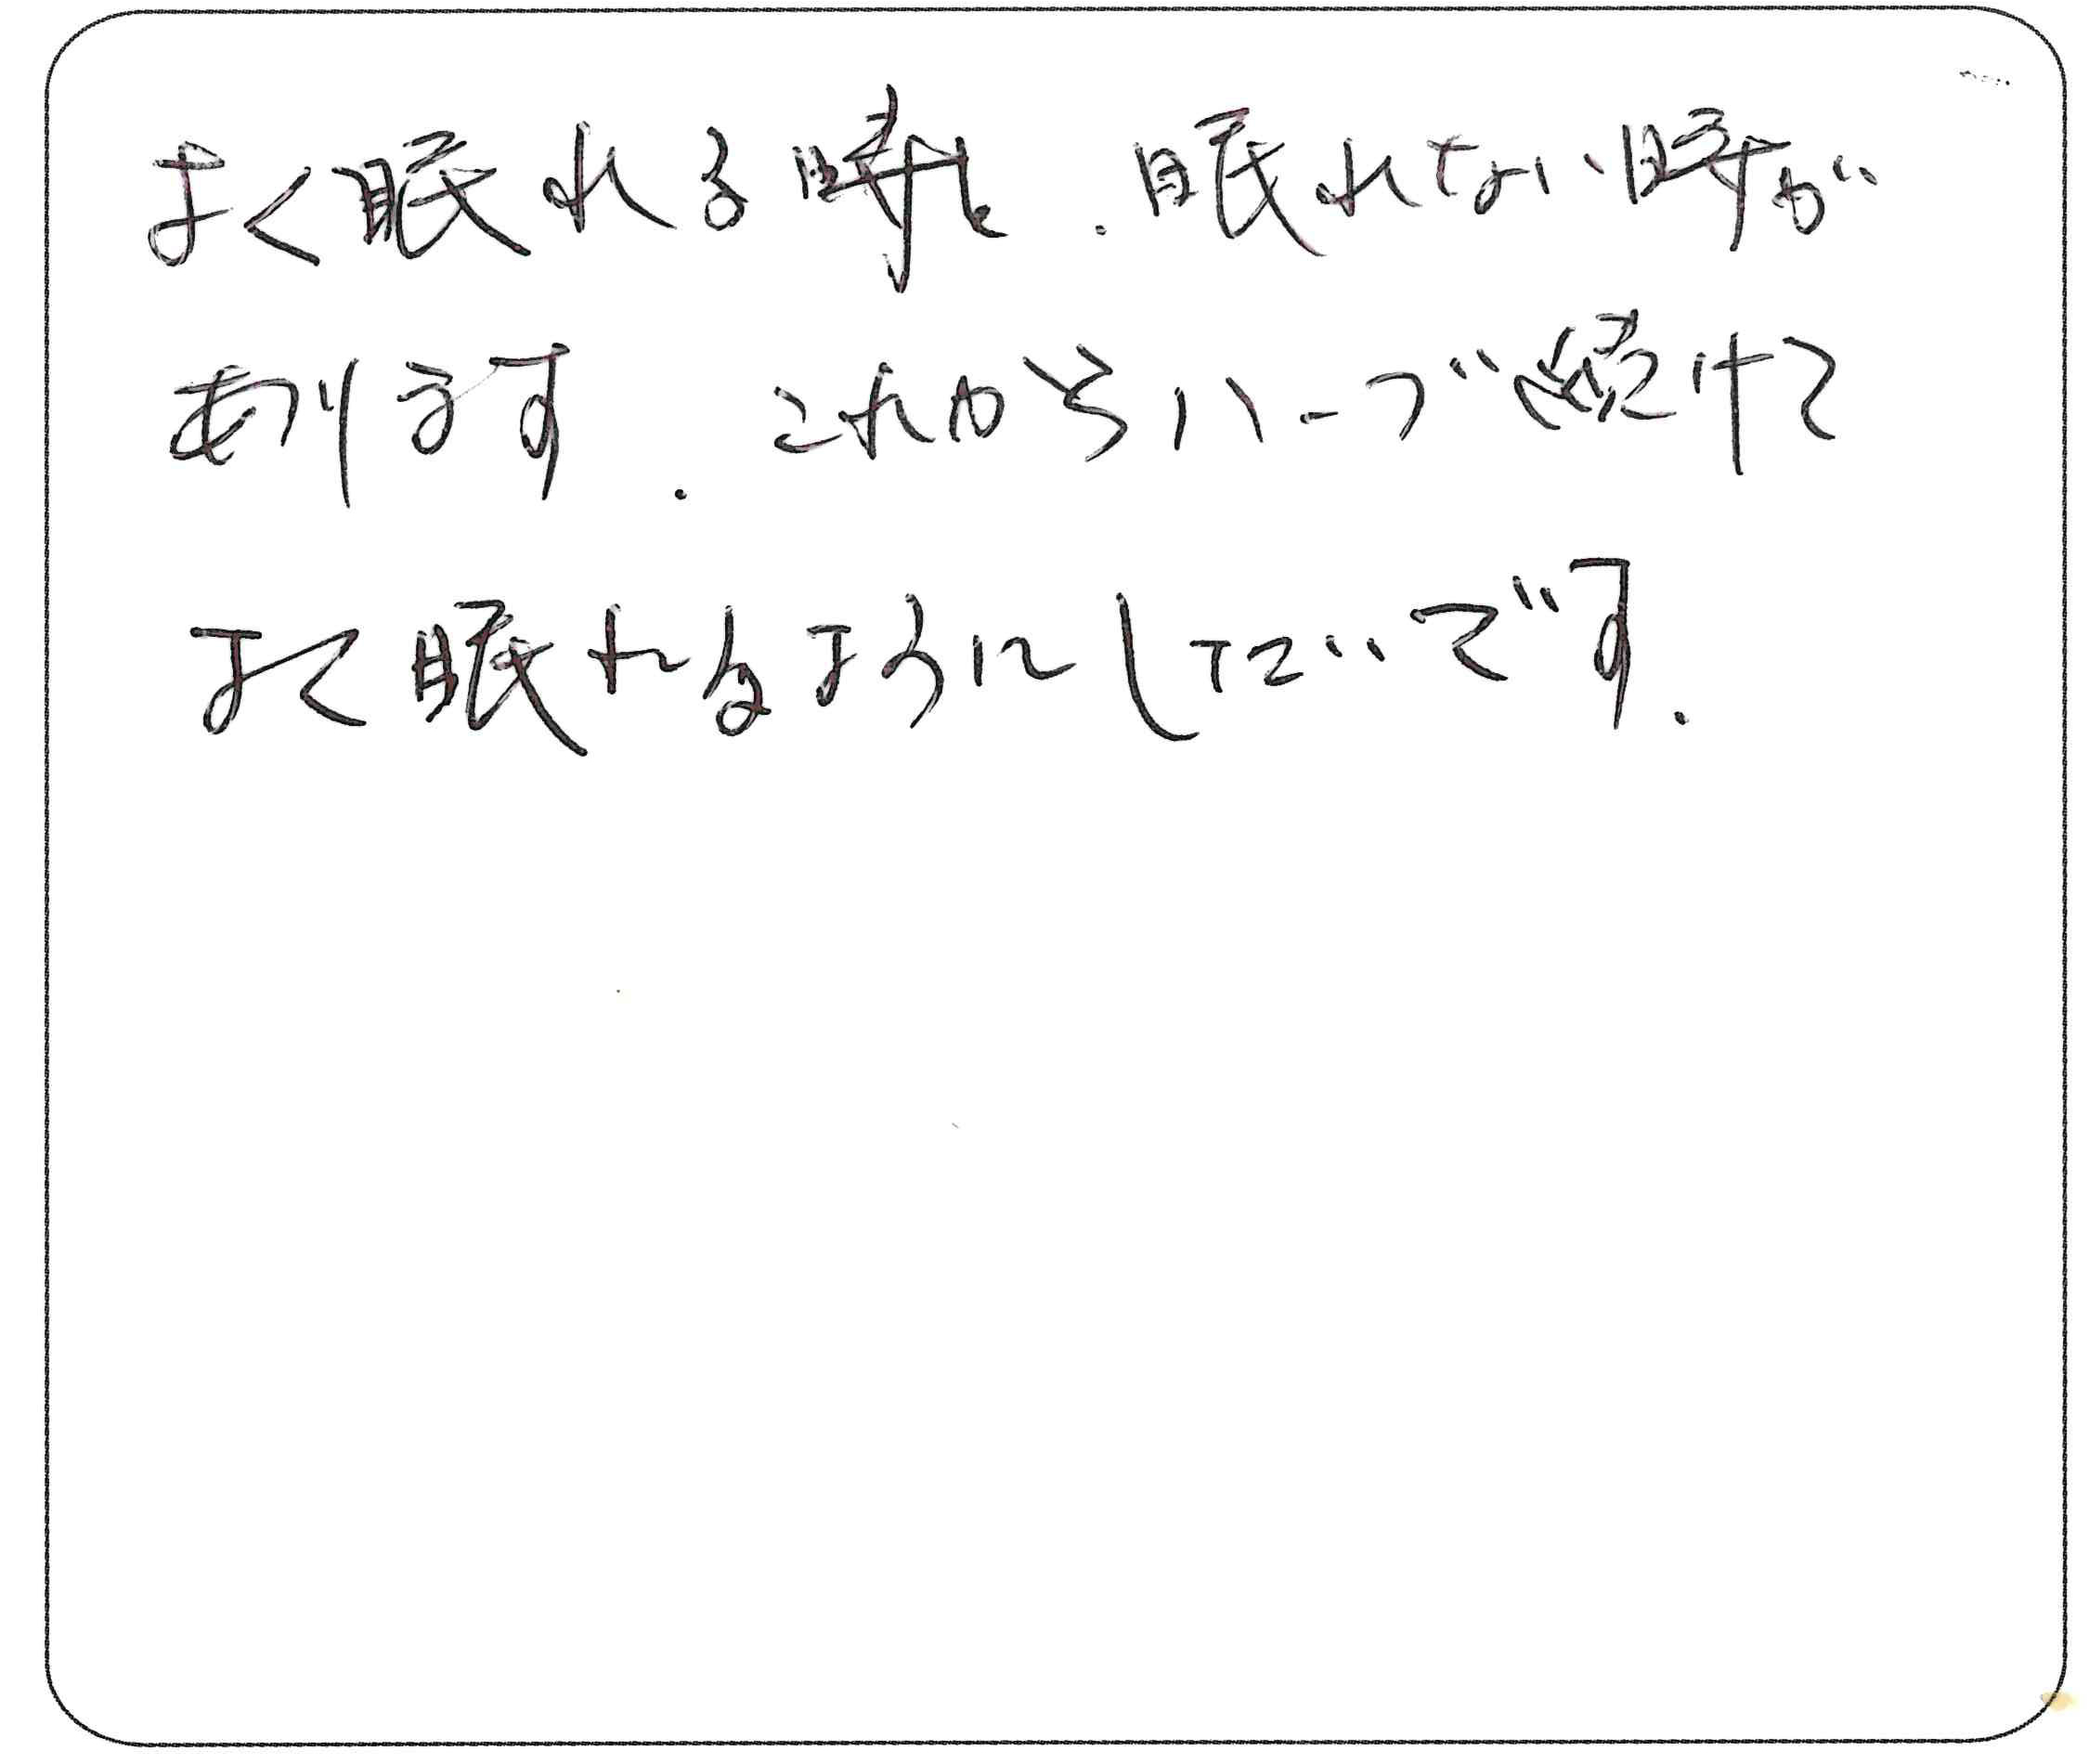 よく眠れる時と、眠れない時が
あります。これからハーブ続けて
よく眠れるようにしたいです。